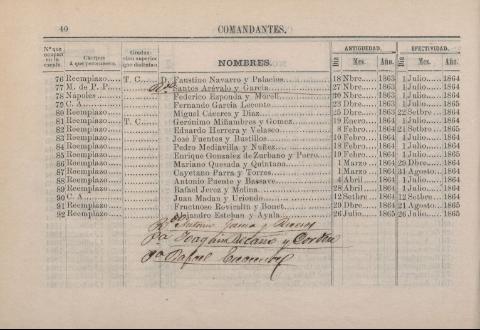 40
COMANDANTES.
Nº que ocupan en la escala. Cuerpos á que pertenecen. Gradua-cion superior que disfrutan. NOMBRES. ANTIGÜEDAD. EFECTIVIDAD.
Dia Mes. Año. Dia Mes. Año.
76 Reemplazo T. C. D. Faustino Navarro y Palacios 18 Nbre. 1863 1 Julio. 1864
77 M. de P. P. Santos Arévalo y García 27 Nbre. 1863 1 Julio. 1864
78 Nápoles Federico Esponda y Morell 30 Nbre. 1863 1 Julio. 1864
79 C. A. Fernando García Leconte 23 Dbre. 1863 1 Julio. 1865
80 Reemplazo Miguel Cáceres y Diaz 25 Dbre. 1863 22 Setbre 1864
81 Reemplazo T. C. Gerónimo Miñambres y Gomez 19 Enero 1864 1 Julio. 1864
82 Reemplazo Eduardo Herrera y Velasco 8 Febro 1864 21 Setbre. 1865
83 Reemplazo José Fuentes y Bustillos 10 Febro 1864 1 Julio. 1864
84 Reemplazo Pedro Mediavilla y Nuñez 18 Febro 1864 1 Julio. 1864
85 Reemplazo Enrique Gonzalez de Zurbano y Porro 19 Febro 1864 1 Julio. 1864
86 Reemplazo Mariano Quesada y Quintano 1 Marzo 1864 29 Dbre. 1864
87 Reemplazo Cayetano Parra y Torres 1 Marzo 1864 31 Agosto 1864
88 Reemplazo Antonio Puente y Bassave 4 Abril 1864 1 Julio. 1864
89 Reemplazo Rafael Jerez y Molina 28 Abril 1864 1 Julio. 1864
90 C. A. Juan Madan y Uriondo 12 Setbre 1864 12 Setbre 1864
91 Reemplazo Fructuoso Roviralin y Bonet 29 Dbre. 1864 21 Agosto. 1865
92 Reemplazo Alejandro Esteban y Ayala 26 Julio 1865 26 Julio 1865
Antonio
Joaquin y
Rafael